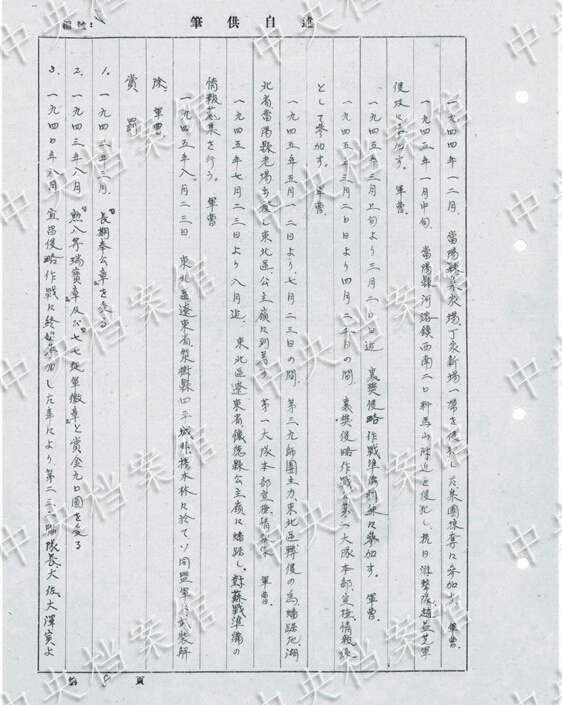 筆供自述
一九四四年一二月、當陽縣
一帶を侵犯した集團掠奪に参加す。軍曹。
一九四五年一月中旬、當陽縣河溶鎮西南二〇粁馬山附近を侵犯し、抗日游撃隊趙
侵攻に参加す。軍曹。
一九四五年三月 旬より三月二〇日迄 襄樊侵略作戰準備 に参加す。軍曹。
一九四五年三月二〇日より四月二 日の間、襄樊侵略作戰の第一大隊本部、宣撫情報係
として参加す。軍曹。
一九四五年五月一二日より、七月二三日の間、第三九師團主力、東北區轉移の為、蟠踞地湖
北省當陽縣老場出発、東北區、公主嶺に到着す。第一大隊本部宣撫情報係 軍曹。
一九四五年七月二三日より八月迄、東北區遼東省懐德縣公主嶺に蟠踞し、對蘇戰準備の
情報蒐集を行う。軍曹
一九四五年八月二三日 東北區遼東省梨樹縣四平城 林に於てソ同盟軍に武装解
除 軍曹
賞 罰
1. 一九四二年三月 長期奉公章を受る
2. 一九四三年八月 勲八等瑞寶章及び七七從軍徽章と賞金九〇圓を受る
3. 一九四〇年八月 宜昌侵略作戰に終始参加した 第二三一聯隊長、大佐大澤 よ
第 8 頁
中央档案馆